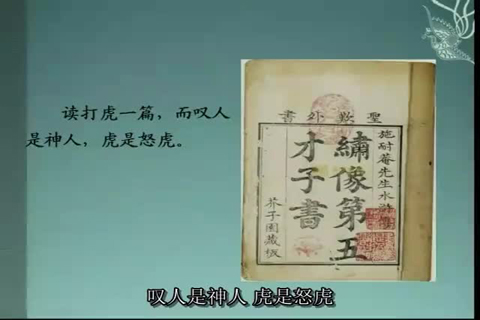 读打虎一篇，而叹人
是神人，虎是怒虎。
聖歎外書
施耐菴先生水滸傳
繡像第五
才子書
芥子園藏板
叹人是神人 虎是怒虎